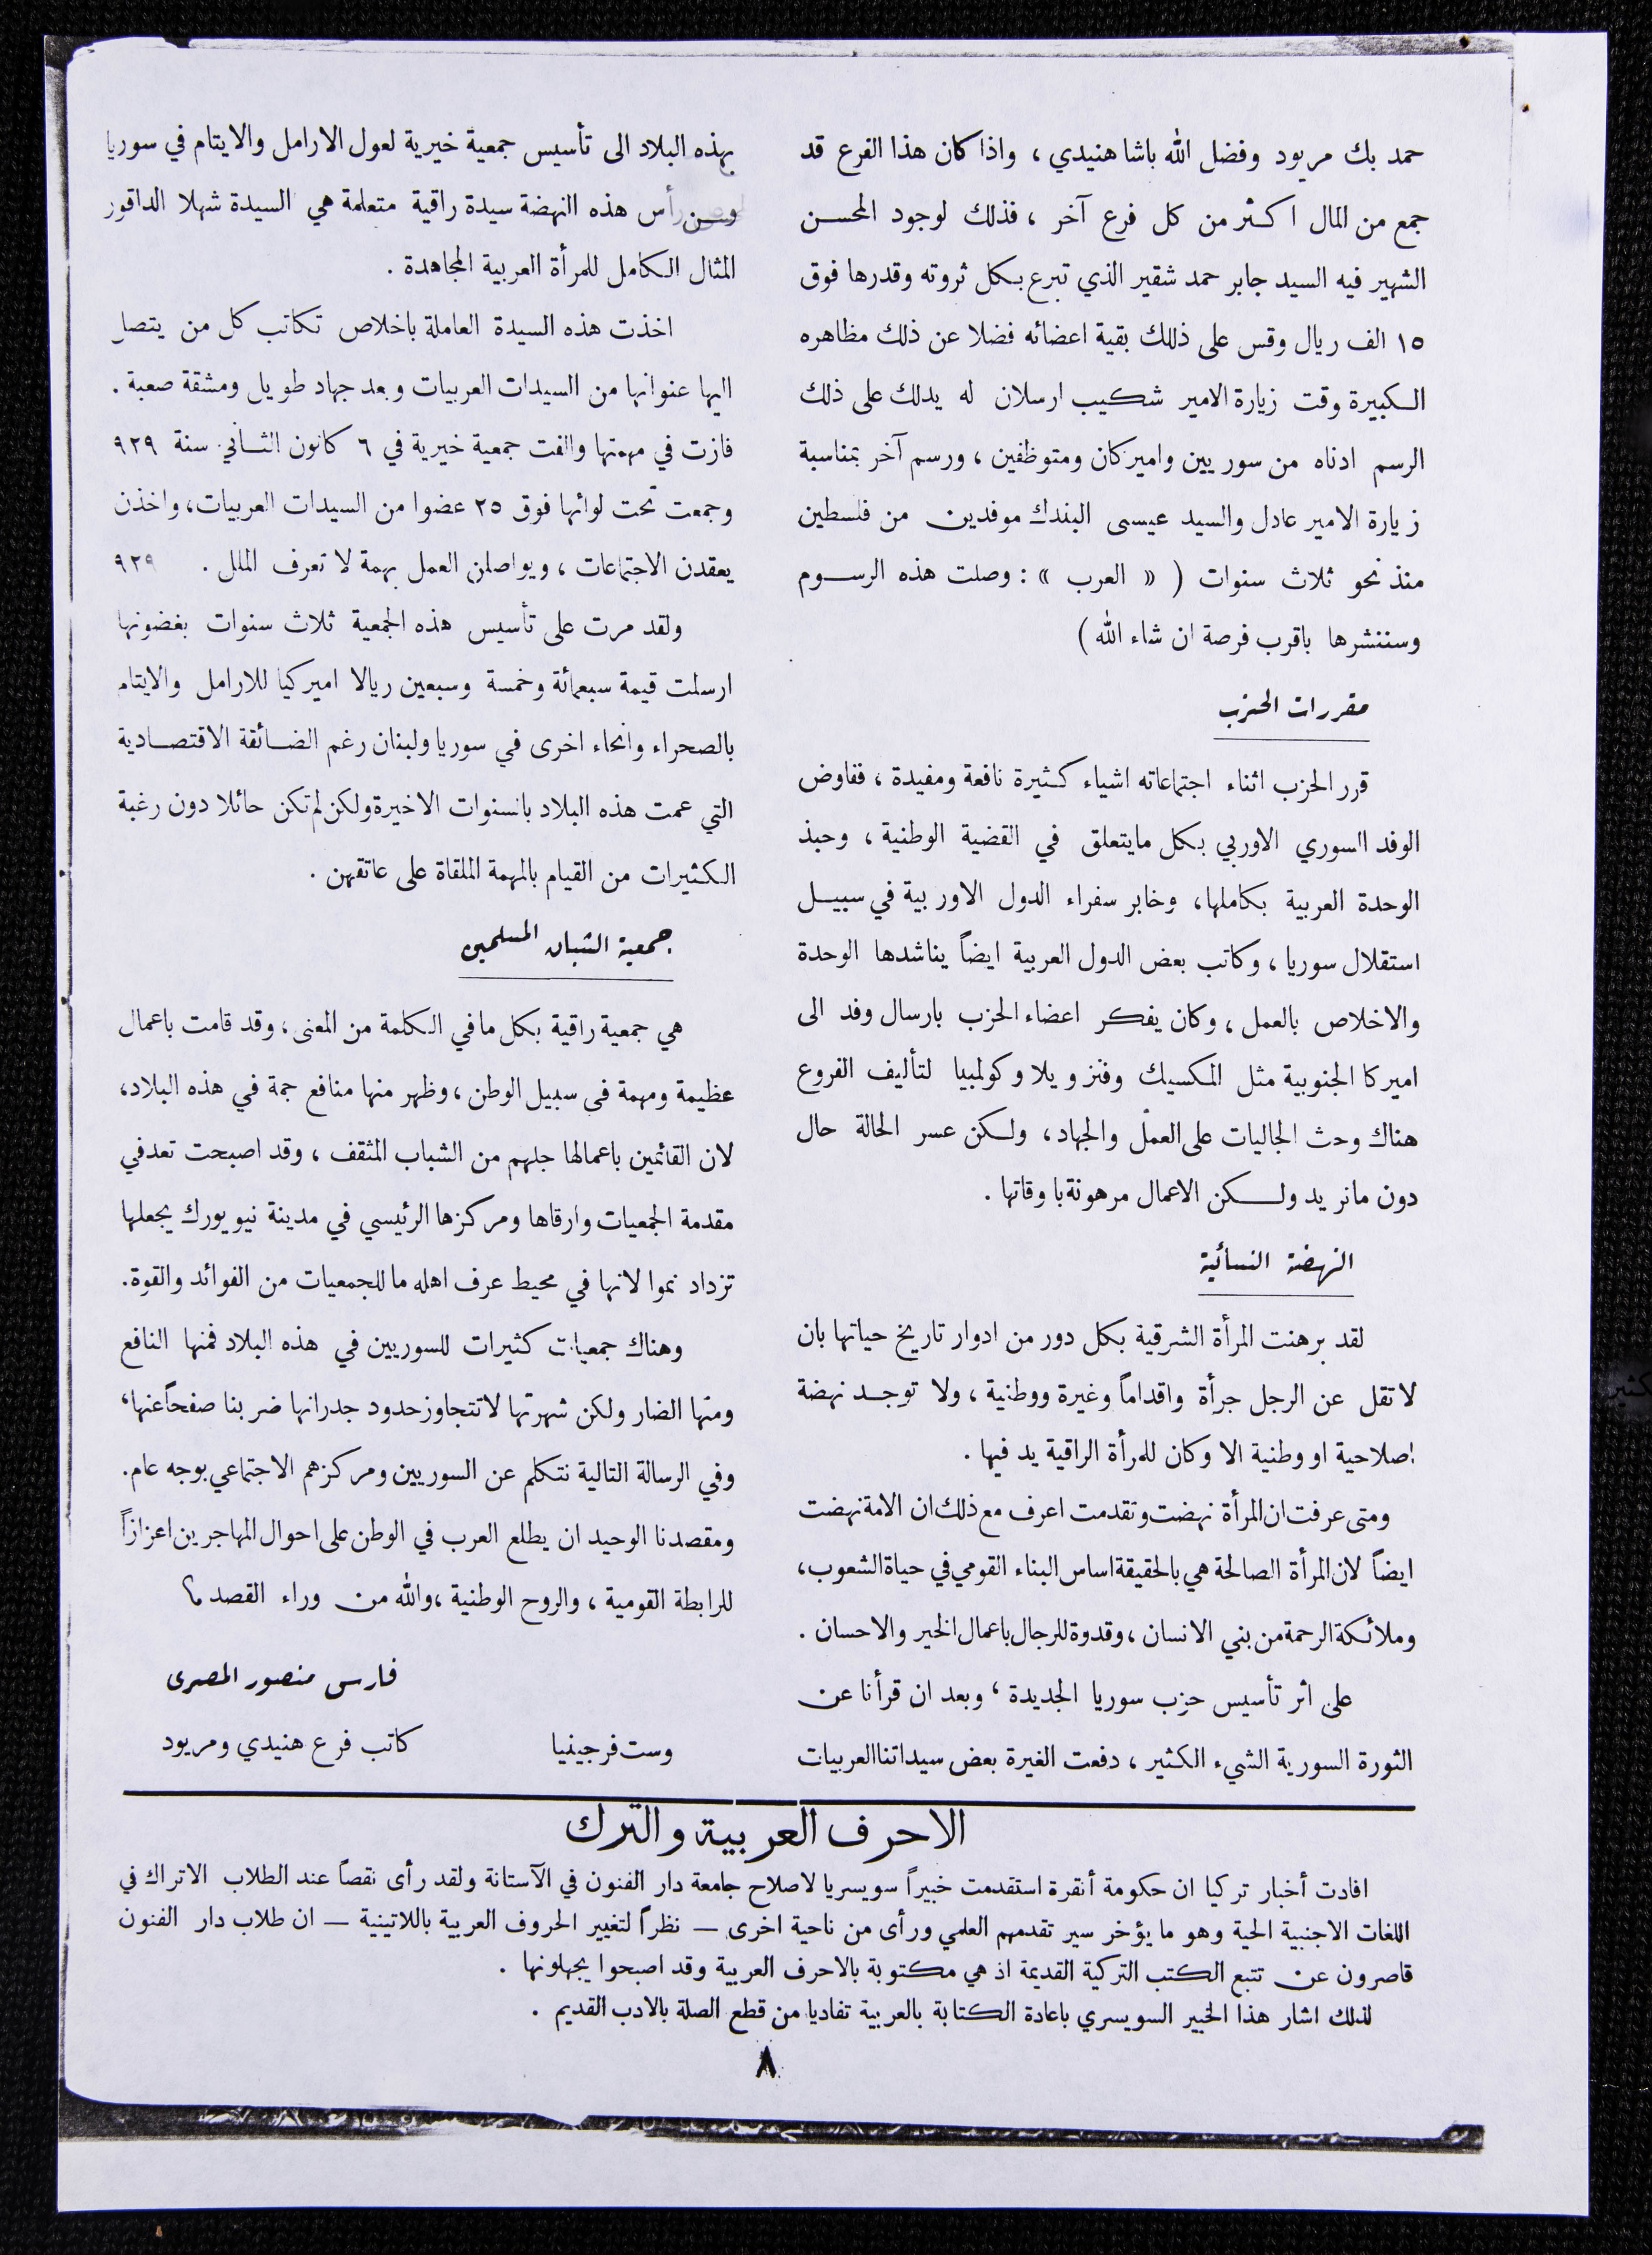 حمد بك مريود وفضل الله باشا هنيدي ، واذا كان هذا الفرع قد
جمع من المال اكثر من كل فرع آخر ، فذلك لوجود المحسن
الشهير فيه السيد جابر حمد شقير الذي تبرع بكل ثروته وقدرها فوق
١٥ الف ريال وقس على ذلك بقية اعضائه فضلا عن ذلك مظاهره
الكبيرة وقت زيارة الامير شكيب ارسلان له يدلك على ذلك
الرسم ادناه من سوريين واميركان ومتوظفين ، ورسم آخر بمناسبة
زيارة الامير عادل والسيد عيسى البندك موفدين من فلسطين
منذ نحو ثلاث سنوات ( « العرب » : وصلت هذه الرسوم
وسننشرها باقرب فرصة ان شاء الله )
مقررات الحزب
قرر الحزب اثناء اجتماعاته اشياء كثيرة نافعة ومفيدة ، ففاوض
الوفد السوري الاوربي بكل مايتعلق في القضية الوطنية ، وحبذ
الوحدة العربية بكاملها ، وخابر سفراء الدول الاوربية في سبيل
استقلال سوريا ، وكاتب بعض الدول العربية ايضاً يناشدها الوحدة
والاخلاص بالعمل ، وكان يفكر اعضاء الحزب بارسال وفد الى
اميركا الجنوبية مثل المكسيك وفنزويلا وكولمبيا لتأليف الفروع
هناك وحث الجاليات على العمل والجهاد ، ولكن عسر الحالة حال
دون مانريد ولكن الاعمال مرهونة باوقاتها .
النهضة النسائية
لقد برهنت المرأة الشرقية بكل دور من ادوار تاريخ حياتها بان
لا تقل عن الرجل جرأة واقداماً وغيرة ووطنية ، ولا توجد نهضة
اصلاحية او وطنية الا وكان للمرأة الراقية يد فيها .
ومتى عرفت ان المرأة نهضت وتقدمت اعرف مع ذلك ان الامة نهضت
ايضاً لان المرأة الصالحة هي بالحقيقة اساس البناء القومي في حياة الشعوب ،
وملائكة الرحمة من بني الانسان ، وقدوة للرجال باعمال الخير والاحسان .
على اثر تأسيس حزب سوريا الجديدة ، وبعد ان قرأنا عن
الثورة السورية الشيء الكثير ، دفعت الغيرة بعض سيداتنا العربيات
بهذه البلاد الى تأسيس جمعية خيرية لعول الارامل والايتام في سوريا
رأس هذه النهضة سيدة راقية متعلمة هي السيدة شهلا الداقور
المثال الكامل للمرأة العربية المجاهدة .
اخذت هذه السيدة العاملة باخلاص تكاتب كل من يتصل
اليها عنوانها من السيدات العربيات وبعد جهاد طويل ومشقة صعبة .
فازت في مهمتها والفت جمعية خيرية في ٦ كانون الثاني سنة ٩٢٩
وجمعت تحت لوائها فوق ٢٥ عضوا من السيدات العربيات ، واخذن
يعقدن الاجتماعات ، ويواصلن العمل بهمة لا تعرف الملل . ٩٢٩
ولقد مرت على تأسيس هذه الجمعية ثلاث سنوات بغضونها
ارسلت قيمة سبعمائة وخمسة وسبعين ريالا اميركيا للارامل والايتام
بالصحراء وانحاء اخرى في سوريا ولبنان رغم الضائقة الاقتصادية
التي عمت هذه البلاد بالسنوات الاخيرة ولكن لم تكن حائلا دون رغبة
الكثيرات من القيام بالمهمة الملقاة على عاتقهن .
جمعية الشبان المسلمين
هي جمعية راقية بكل ما في الكلمة من المعنى ، وقد قامت باعمال
عظيمة ومهمة في سبيل الوطن ، وظهر منها منافع جمة في هذه البلاد ،
لان القائمين باعمالها جلهم من الشباب المثقف ، وقد اصبحت تعد في
مقدمة الجمعيات وارقاها ومركزها الرئيسي في مدينة نيويورك يجعلها
تزداد نموا لانها في محيط عرف اهله ما للجمعيات من الفوائد والقوة .
وهناك جمعيات كثيرات للسوريين في هذه البلاد فمنها النافع
ومنها الضار ولكن شهرتها لا تتجاوز حدود جدرانها ضربنا صفحاً عنها ،
وفي الرسالة التالية نتكلم عن السوريين ومركزهم الاجتماعي بوجه عام .
ومقصدنا الوحيد ان يطلع العرب في الوطن على احوال المهاجرين اعزازاً
للرابطة القومية ، والروح الوطنية ، والله من وراء القصد ؟
فارس منصور المصرى
وست فرجينيا كاتب فرع هنيدي ومريود
الاحرف العربية والترك
افادت أخبار تركيا ان حكومة أنقرة استقدمت خبيراً سويسريا لاصلاح جامعة دار الفنون في الآستانة ولقد رأى نقصاً عند الطلاب الاتراك في
اللغات الاجنبية الحية وهو ما يؤخر سير تقدمهم العلمي ورأى من ناحية اخرى — نظراً لتغيير الحروف العربية باللاتينية — ان طلاب دار الفنون
قاصرون عن تتبع الكتب التركية القديمة اذ هي مكتوبة بالاحرف العربية وقد اصبحوا يجهلونها .
لذلك اشار هذا الخبير السويسري باعادة الكتابة بالعربية تفاديا من قطع الصلة بالادب القديم .
٨